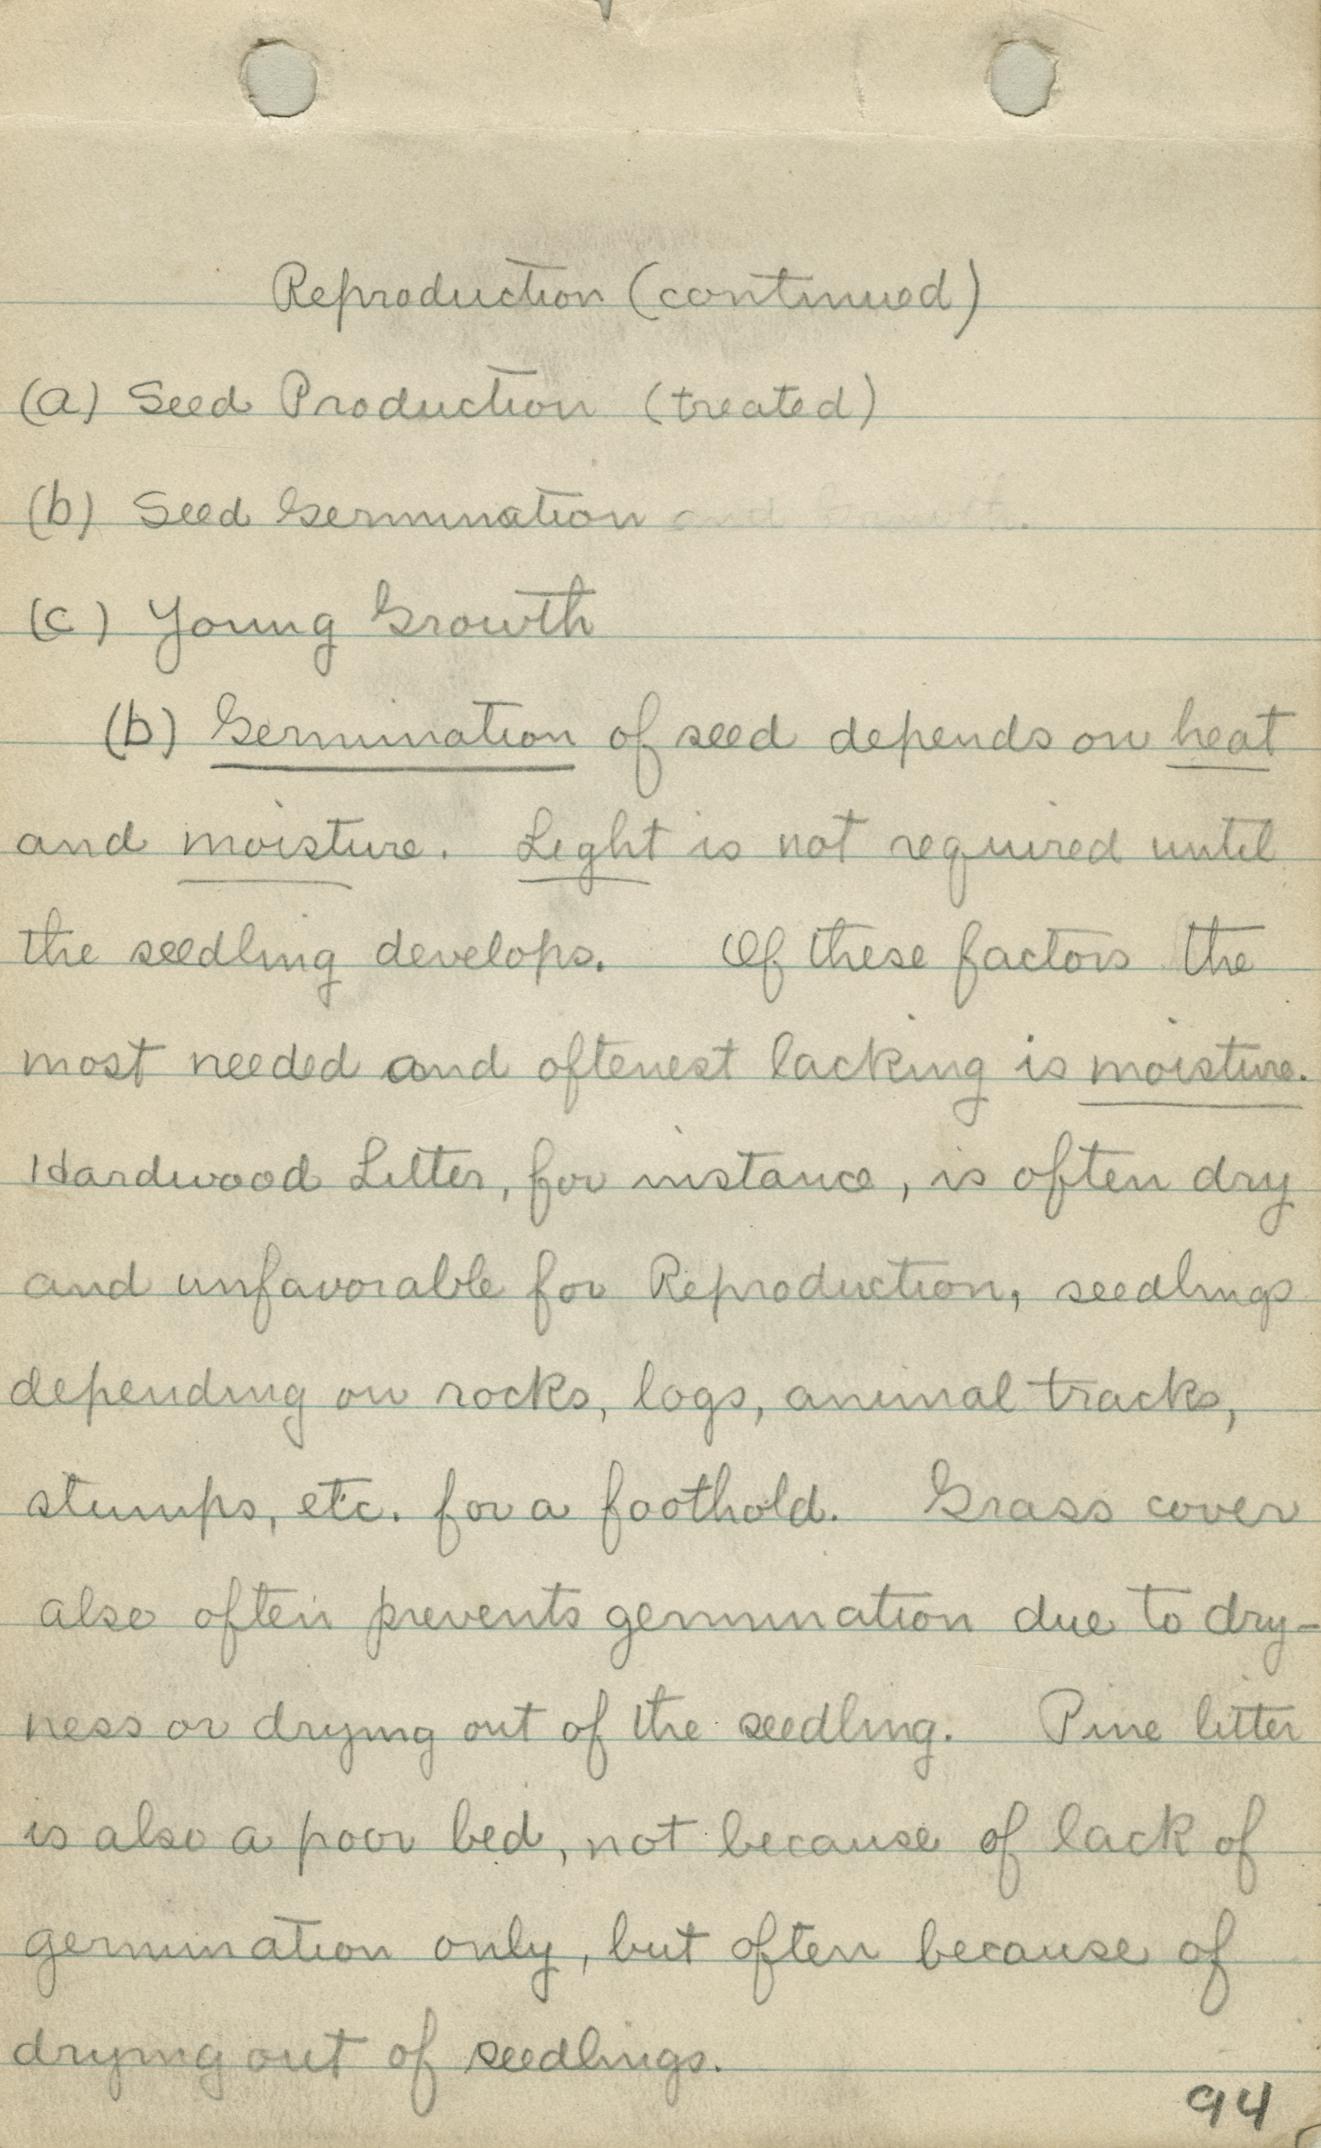 Reproduction (continued)
(a) Seed Production (treated)
(b) Seed Germination and
(c) Young Growth
(b) Germination of seed depends on heat
and moisture. Light is not required until
the seedling develops. Of these factors the
most needed and oftenest lacking is moisture.
Hardwood Litter, for instance, is often dry
and unfavorable for Reproduction, seedlings
depending on rocks, logs, animal tracks,
stumps, etc. for a foothold. Grass cover
also often prevents germination due to dry-
ness or drying out of the seedling. Pine litter
is also a poor bed, not because of lack of
germination only, but often because of
drying out of seedlings.
94